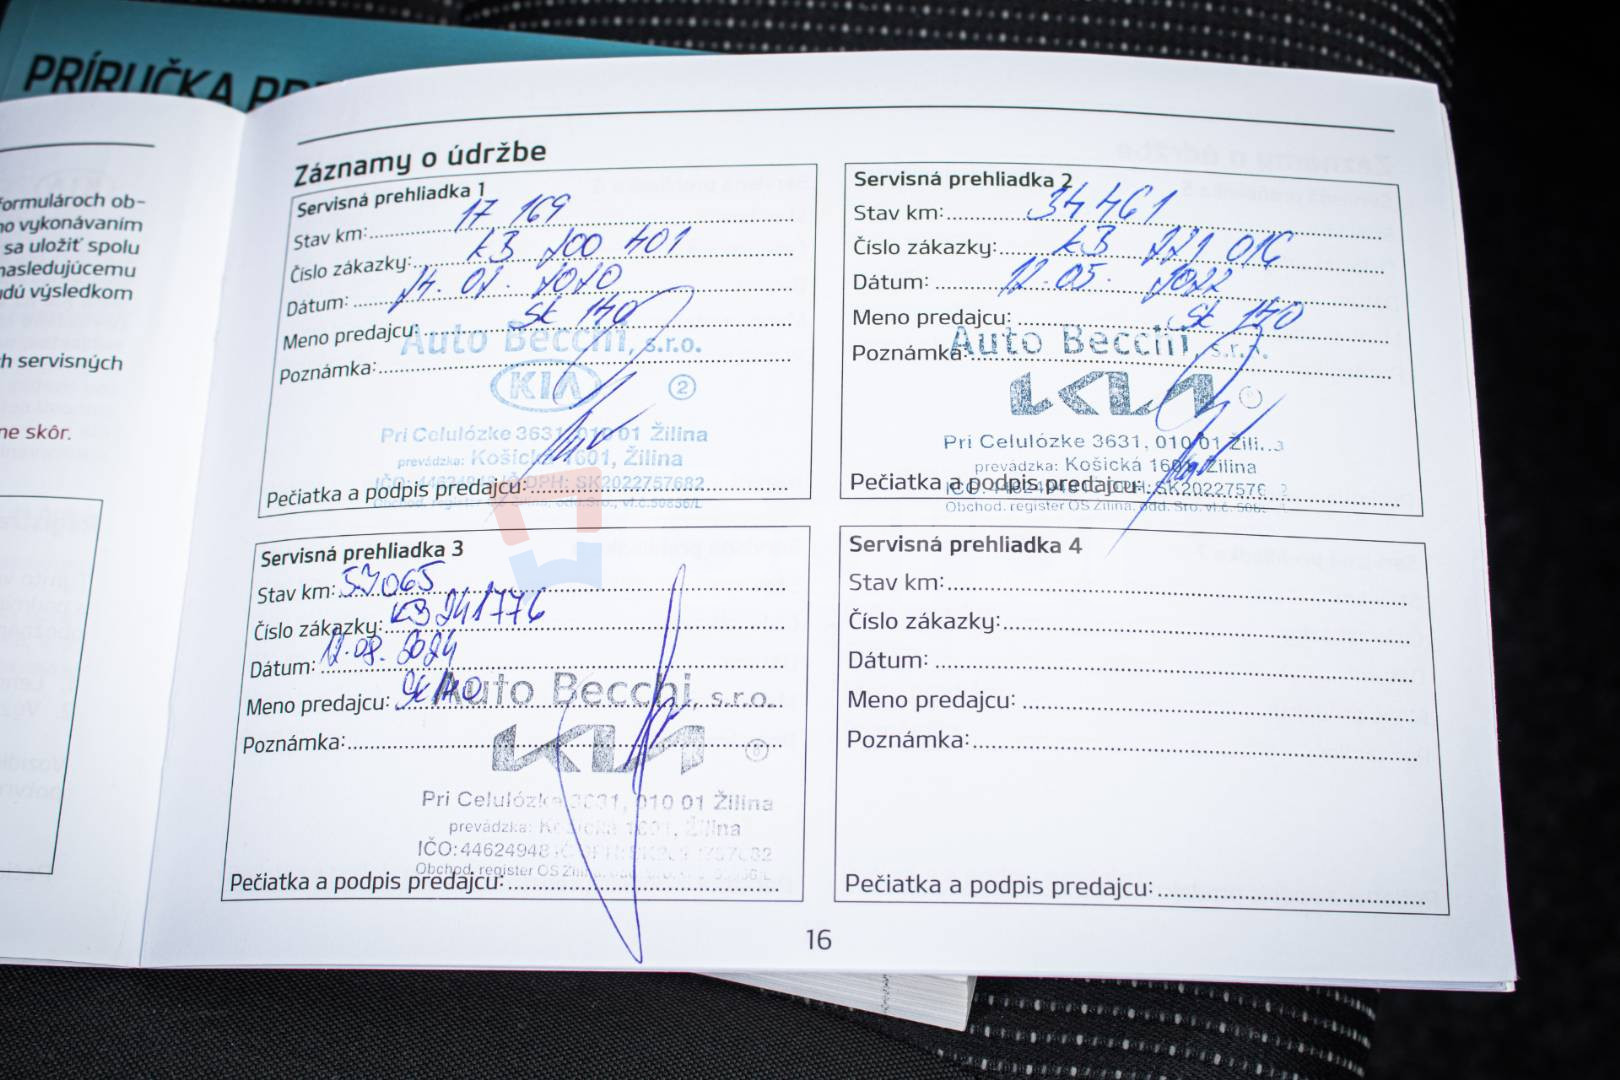 PRÍRUČKA
formulároch ob-
vykonávaním
sa uložiť spolu
nasledujúcemu
výsledkom
servisných
skôr.
Záznamy o údržbe
Servisná prehliadka 1
Stav km: 17 169
Číslo zákazky: KB 200 401
Dátum:
Meno predajcu: SK 140
Auto Becchi, s.r.o.
Poznámka:
KIA 2
Pri Celulózke 3631, 010 01 Žilina
prevádzka: Košická 1601, Žilina
IČO: 44624948 IČ DPH: SK2022757682
Pečiatka a podpis predajcu:
Servisná prehliadka 2
Stav km: 34 461
Číslo zákazky: KB 221 016
Dátum: 12.05. 2022
Meno predajcu: SK 140
Auto Becchi, s.r.o.
Poznámka:
KIA
Pri Celulózke 3631, 010 01
prevádzka: Košická 1601, Žilina
Pečiatka a podpis predajcu:
Obchod. register OS Žilina, odd. Sro, vl.č.
Servisná prehliadka 3
Stav km: 57065
Číslo zákazky: KB 241776
Dátum: 12.08. 2024
Meno predajcu: SK 140
Auto Becchi, s.r.o.
Poznámka:
KIA
Pri Celulózke 3631, 010 01 Žilina
prevádzka: Košická 1601, Žilina
IČO: 44624948
Obchod. register OS Žilina,
Pečiatka a podpis predajcu:
Servisná prehliadka 4
Stav km:
Číslo zákazky:
Dátum:
Meno predajcu:
Poznámka:
Pečiatka a podpis predajcu:
16